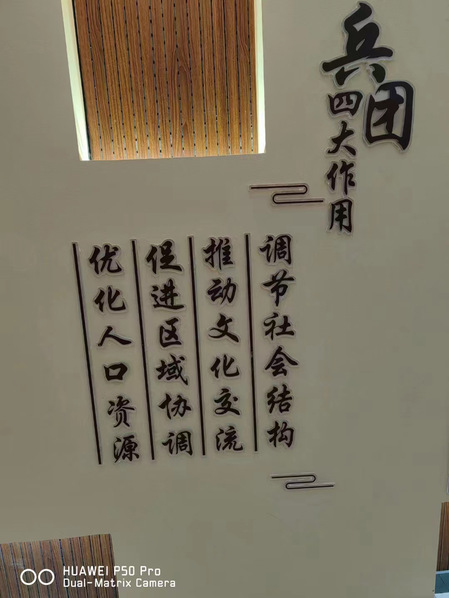 兵团
四大作用
调节社会结构
推动文化交流
促进区域协调
优化人口资源
HUAWEI P50 Pro
Dual-Matrix Camera